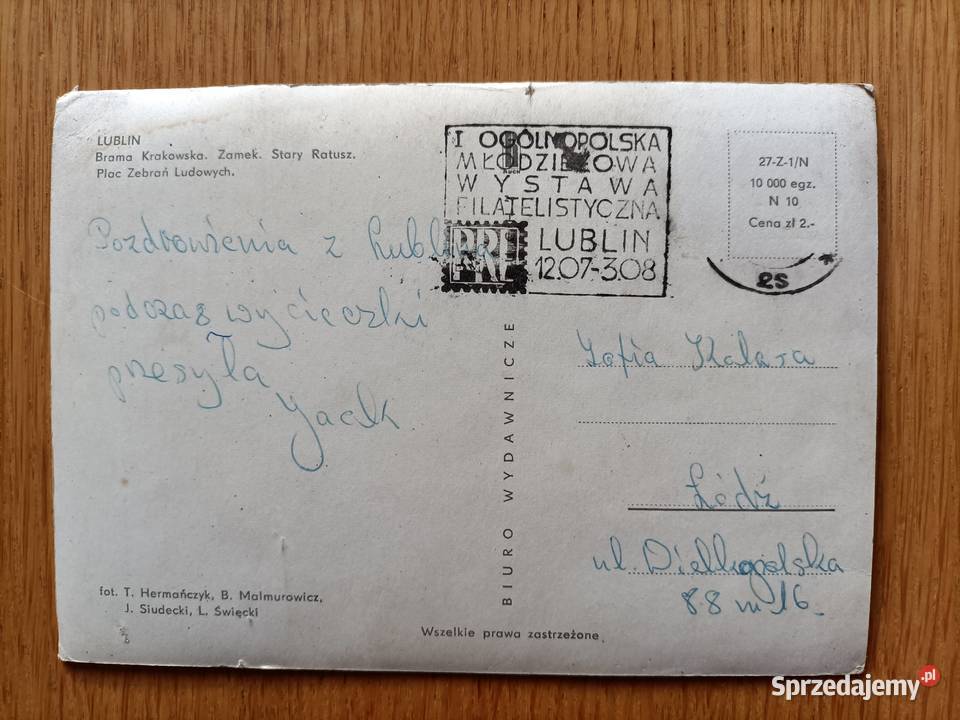 LUBLIN
Brama Krakowska. Zamek. Stary Ratusz.
Plac Zebrań Ludowych.
I OGÓLNOPOLSKA
MŁODZIEŻOWA
WYSTAWA
FILATELISTYCZNA
LUBLIN
12.07-3.08
27-Z-1/N
10 000 egz.
N 10
Cena zł 2.-
Pozdrowienia z Lublina
podczas wycieczki
przesyła
Jacek
BIURO WYDAWNICZE
RUCH
Zofia
Łódź
ul.
88 m 16.
fot. T. Hermańczyk, B. Malmurowicz,
J. Siudecki, L. Święcki
Wszelkie prawa zastrzeżone
Sprzedajemy.pl